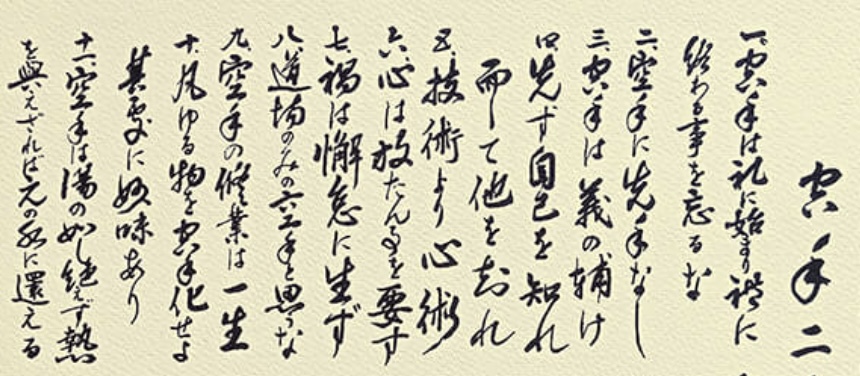 空手二
一、空手は礼に始まり礼に
終わる事を忘るな
二、空手に先手なし
三、空手は義の輔け
四、先ず自己を知れ
而して他を知れ
五、技術より心術
六、心は放たん事を要す
七、禍は懈怠に生ず
八、道場のみの空手と思うな
九、空手の修業は一生
十、凡ゆる物を空手化せよ
其処に妙味あり
十一、空手は湯の如し絶えず熱
を与えざれば元の水に還える